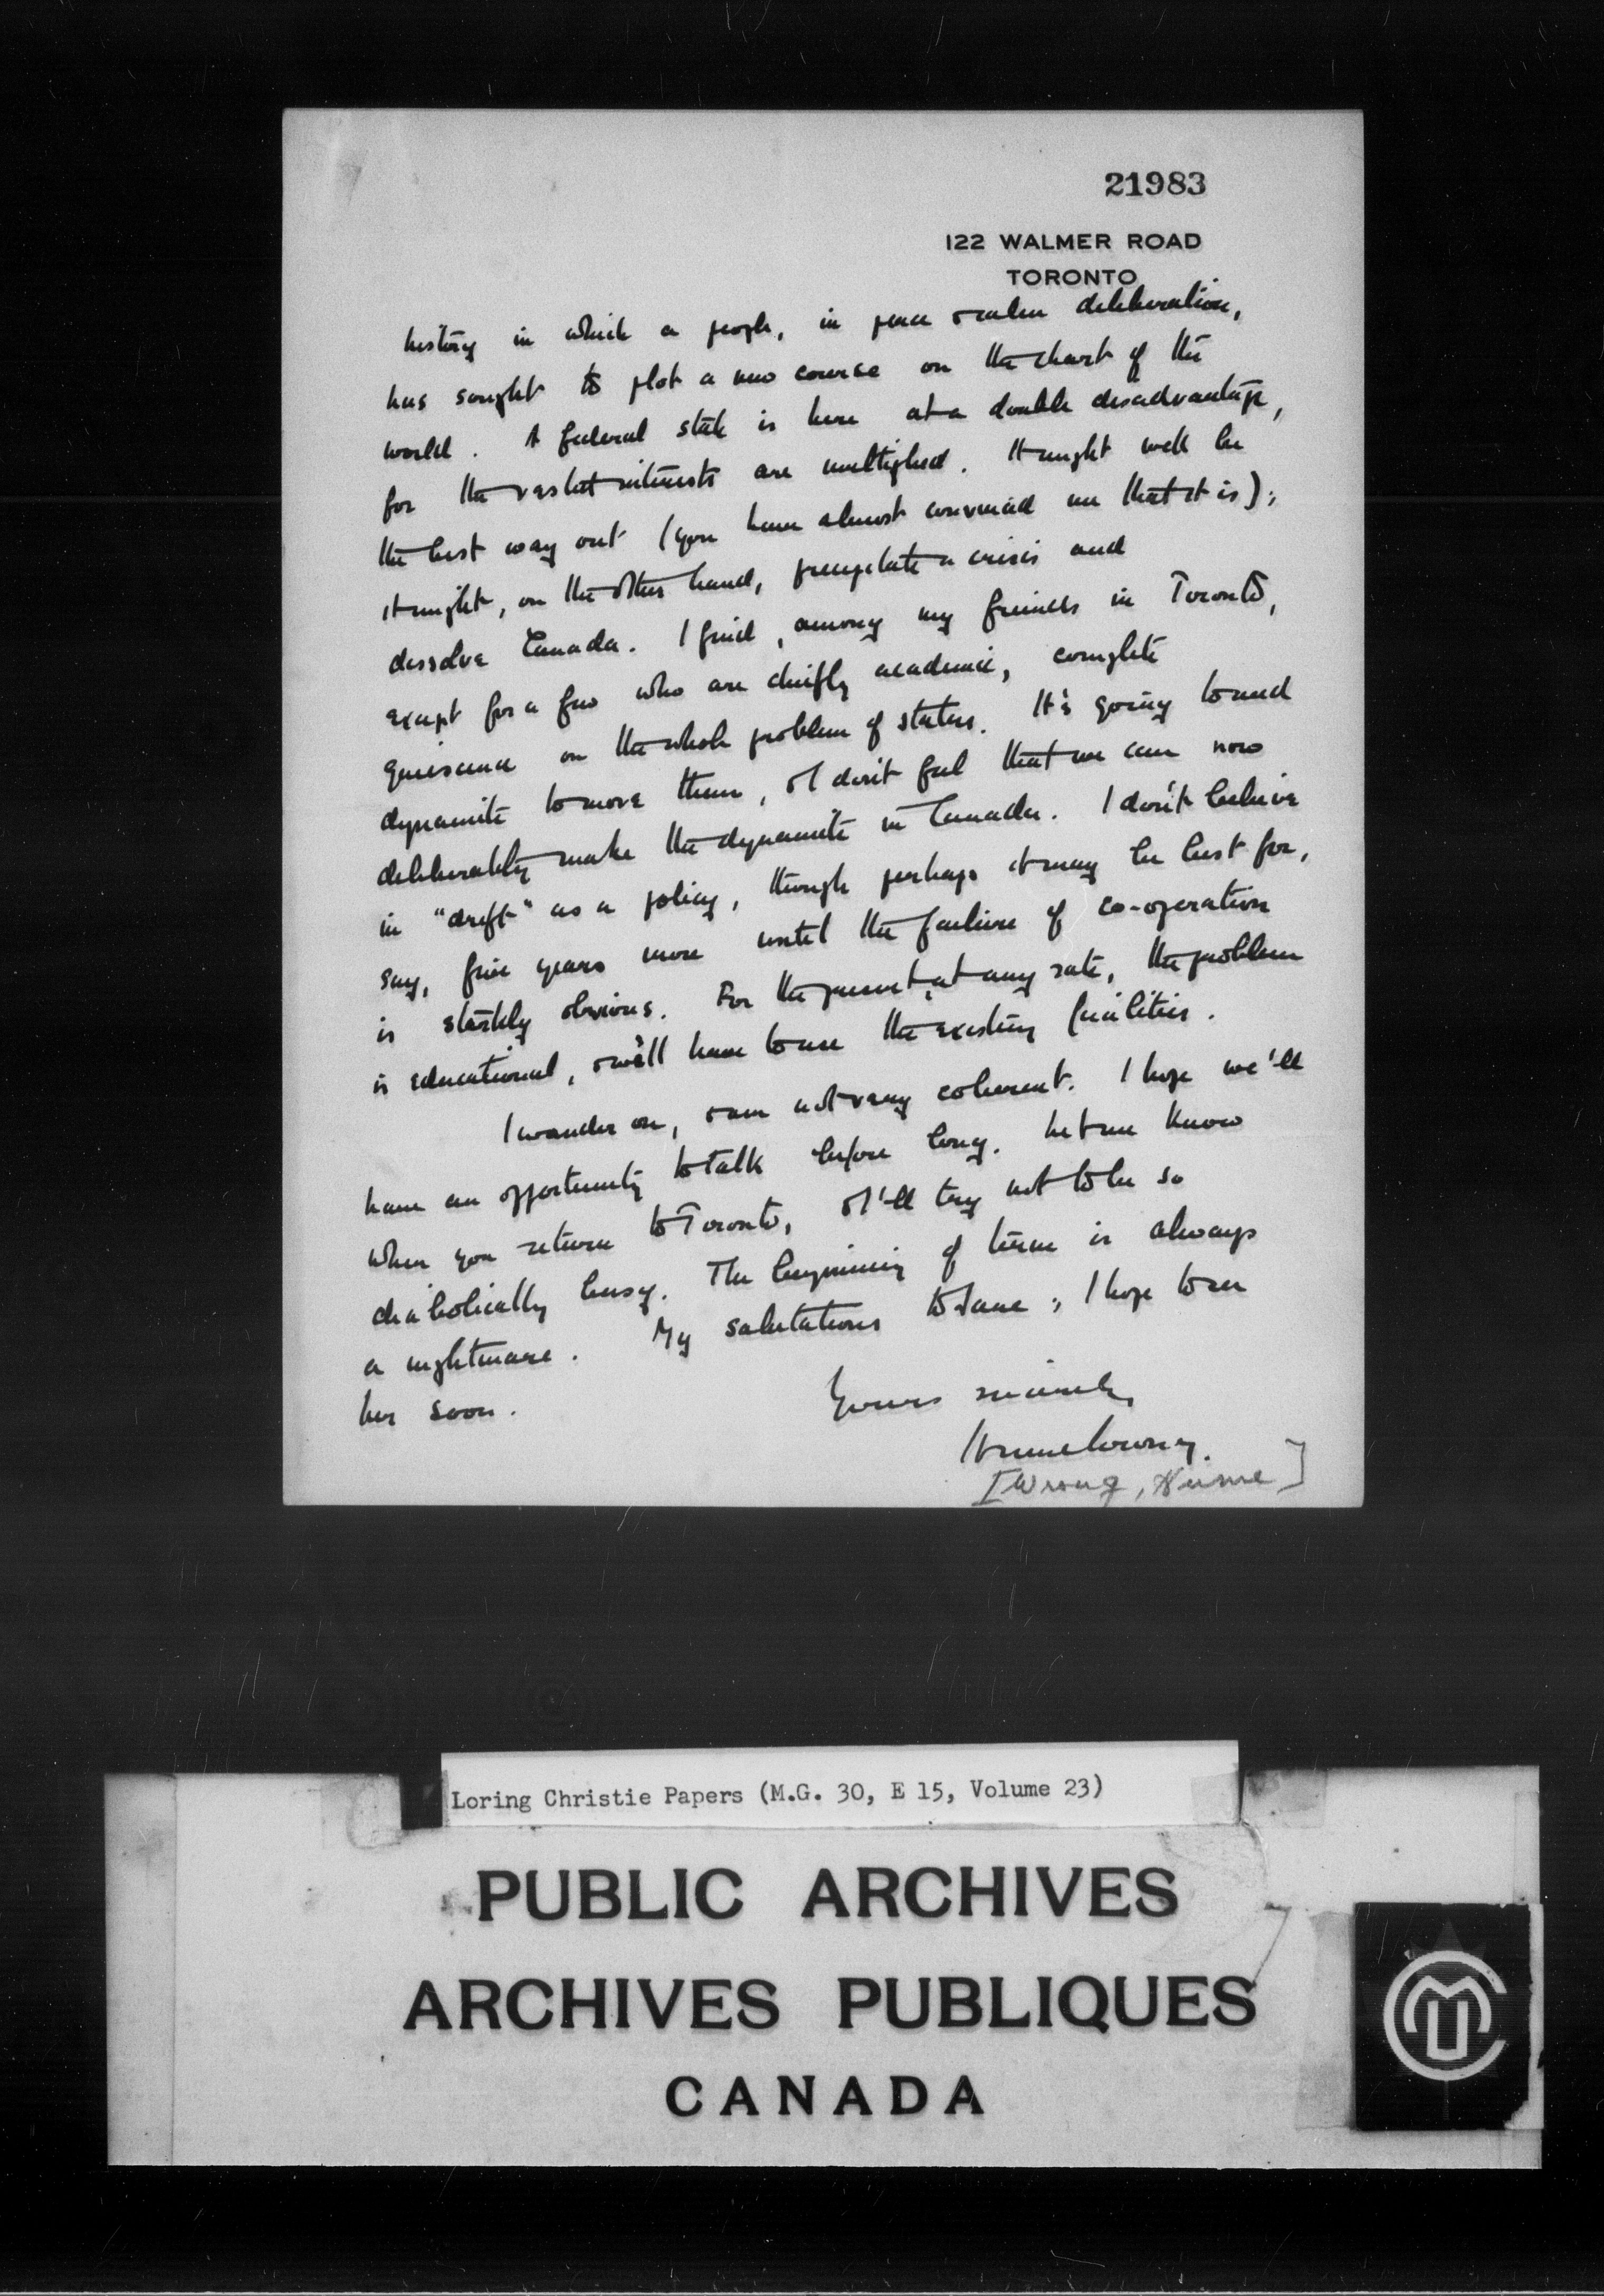 21983
122 WALMER ROAD
TORONTO
history in which a people, in peace & calm deliberation,
has sought to plot a new course on the chart of the
world. A federal state is here at a double disadvantage,
for the vested interests are multiplied. It might well be
the best way out (you have almost convinced me that it is);
it might, on the other hand, precipitate a crisis and
dissolve Canada. I find, among my friends in Toronto,
except for a few who are chiefly academic, complete
quiescence on the whole problem of status. It's going to need
dynamite to move them, & I don't feel that we can now
deliberately make the dynamite in Canada. I don't believe
in "drift" as a policy, though perhaps it may be best for,
say, five years more until the failure of co-operation
is starkly obvious. For the present, at any rate, the problem
is educational, & we'll have to use the existing facilities.
I wander on, & am not very coherent. I hope we'll
have an opportunity to talk before long. Let me know
when you return to Toronto, & I'll try not to be so
diabolically busy. The beginning of term is always
a nightmare. My salutations to Jane; I hope to see
her soon.
Yours sincerely,
Hume Wrong.
[Wrong, Hume]
Loring Christie Papers (M.G. 30, E 15, Volume 23)
PUBLIC ARCHIVES
ARCHIVES PUBLIQUES
CANADA